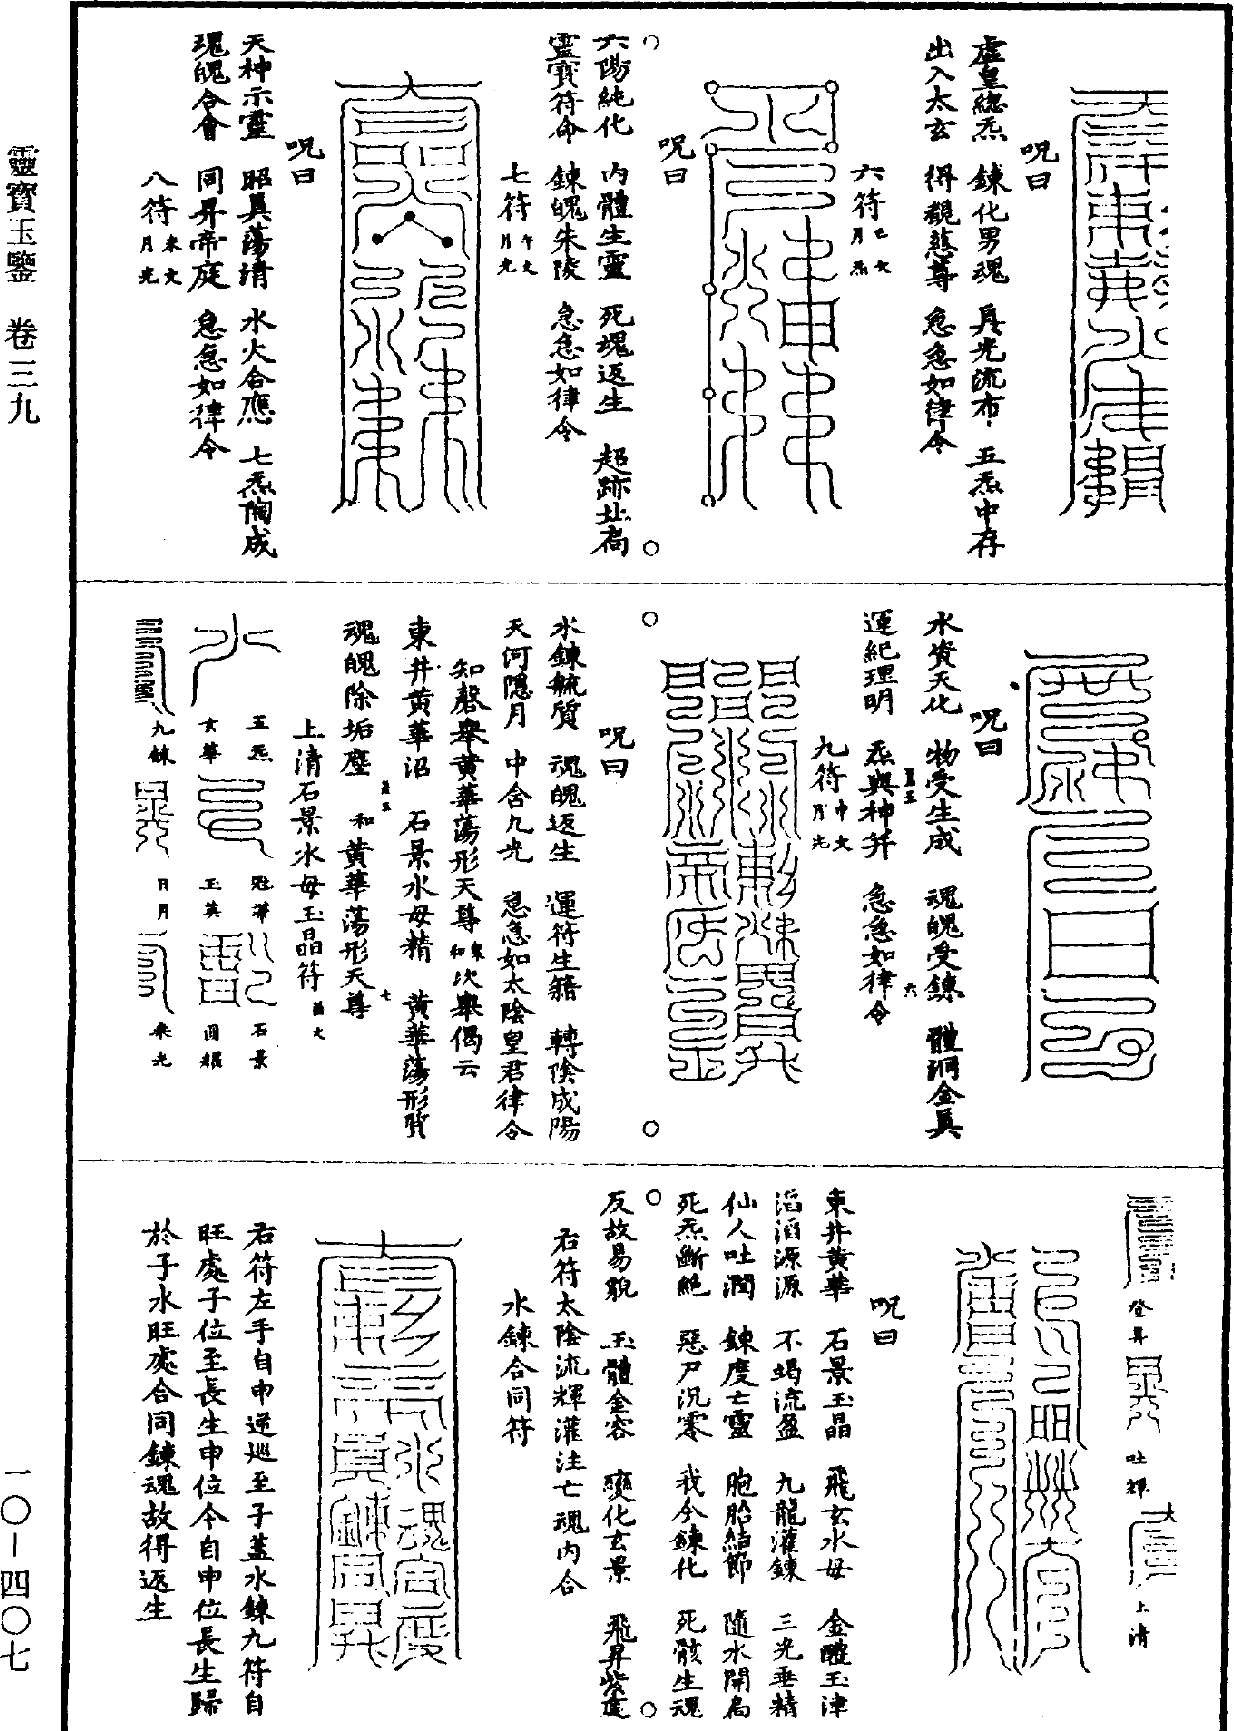 呪曰
虛皇總炁　鍊化男魂　真光流布　五炁中存
出入太玄　得覩慈尊　急急如律令
六符
呪曰
六陽純化　內體生靈　死魂返生　超跡北扃
靈寶符命　鍊魄朱陵　急急如律令
七符
呪曰
天神示靈　昭真蕩清　水火合應　七炁陶成
瑰魄合會　同昇帝庭　急急如律令
八符
呪曰
水資天化　物受生成　魂魄受鍊　體洞金真
運紀理明　炁與神并　急急如律令
九符
呪曰
水鍊毓質　魂魄返生　運符生籍　轉陰成陽
天何隱月　中含九光　急急如太陰皇君律令
知磬舉黃華蕩形天尊　次舉偈云
東井黃華沼　石景水母精　黃華蕩形質
魂魄除垢塵　和　黃華蕩形天尊
上清石景水母玉晶符
五炁　冠帶　石景
玄華　玉英　圓耀
九鍊　日月
登昇　吐輝　上清
呪曰
東井黃華　石景玉晶　飛玄水母　金醴玉津
滔滔源源　不竭流盈　九龍灌鍊　三光垂精
仙人吐潤　鍊度亡靈　胞胎結節　隨水開扃
死炁斷絕　惡尸沉零　我今鍊化　死骸生魂
反故易貌　玉體金容　變化玄景　飛昇紫庭
右符太陰流輝灌注亡魂內合
水鍊合同符
右符左手自申逆巡至子蓋水鍊九符自
旺處子位至長生申位今自申位長生歸
於子水旺處合同鍊魂故得返生
靈寶玉鑒　卷三九
一〇—四〇七